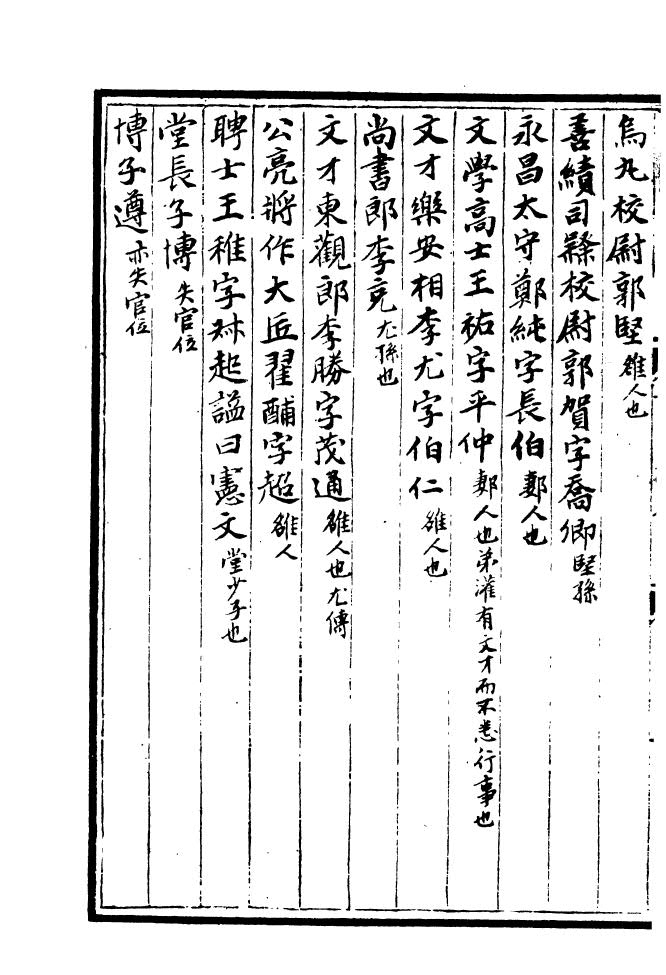 烏丸校尉郭堅雒人也
善績司隸校尉郭賀字喬卿堅孫
永昌太守鄭純字長伯郪人也
文學高士王祐字平仲郪人也弟灌有文才而不悉行事也
文才樂安相李尤字伯仁雒人也
尚書郎李充尤孫也
文才東觀郎李勝字茂通雒人也尤傳
公亮將作大匠翟酺字超雒人
聘士王稚字叔起謚曰憲文堂少子也
堂長子博失官位
博子遵亦失官位